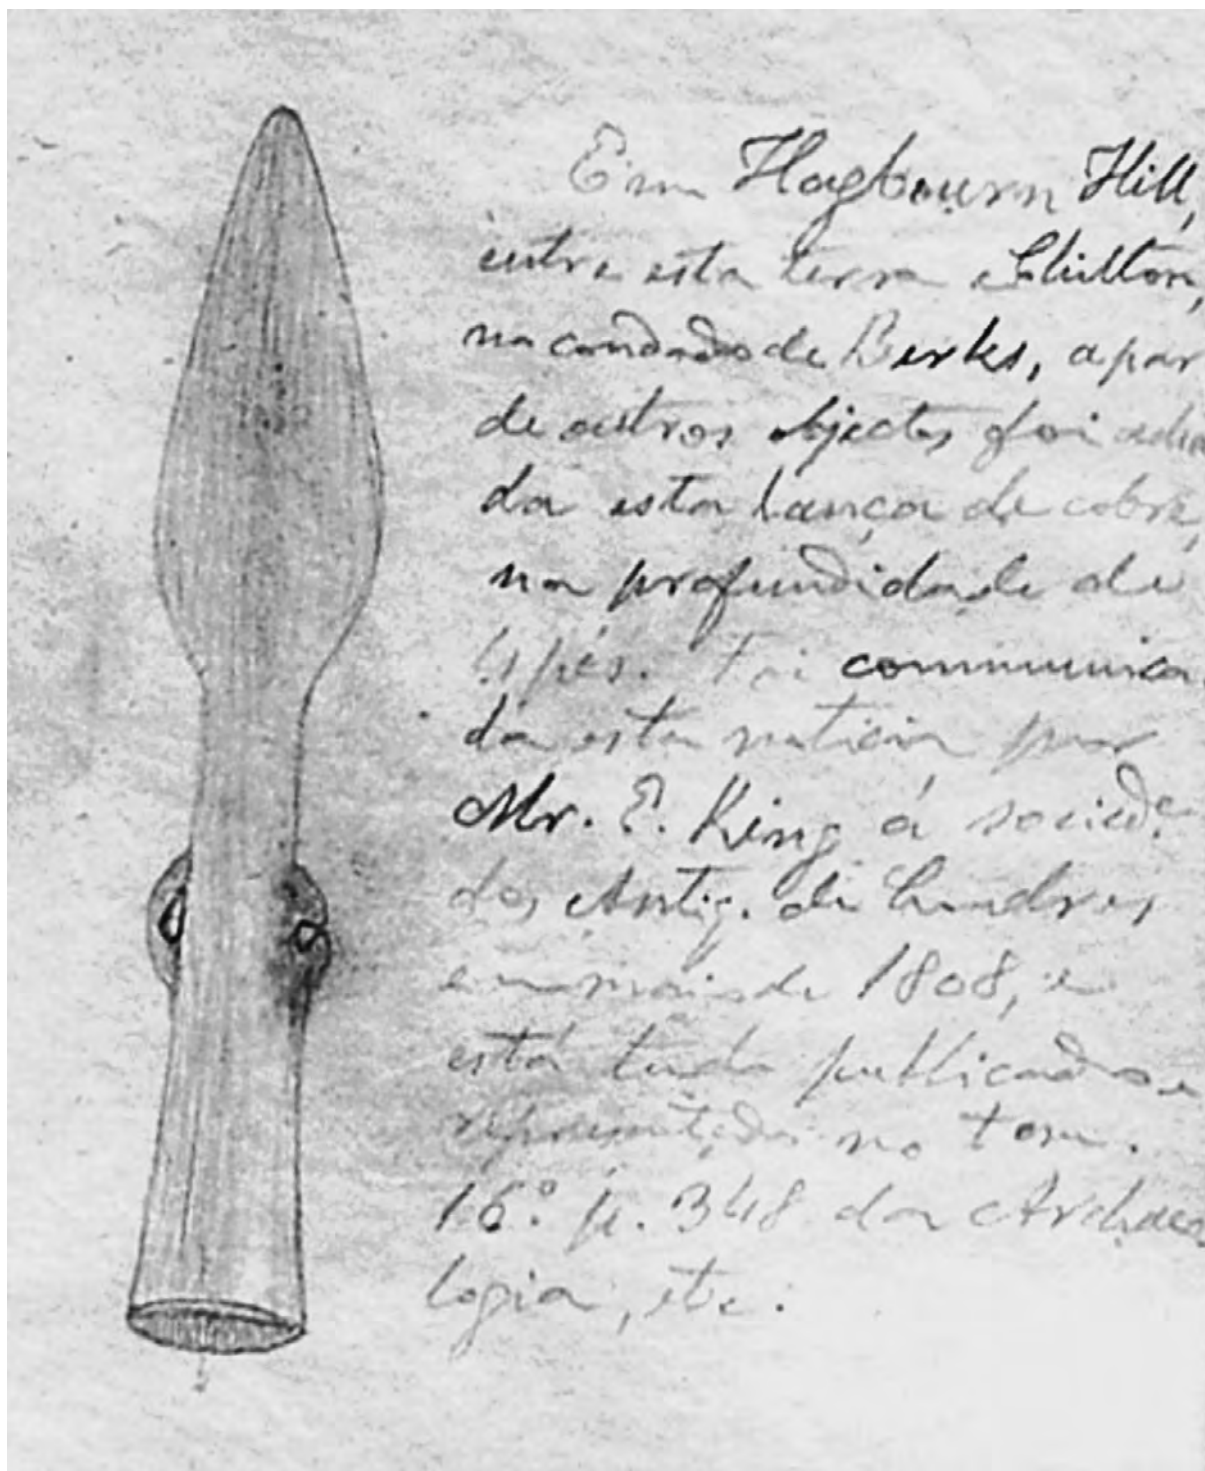 Em Hagbourn Hill,
entre esta terra e Chilton,
no condado de Berks, a par
de outros objectos foi acha
da esta lança de cobre,
na profundidade de
4 pés. Foi communica
da esta noticia por
Mr. E. King á socied.e
dos Antig. de Londres
em maio de 1808, e
está tudo publicado e
representado no tom.
16.º p. 348 da Archaeo
logia, etc.